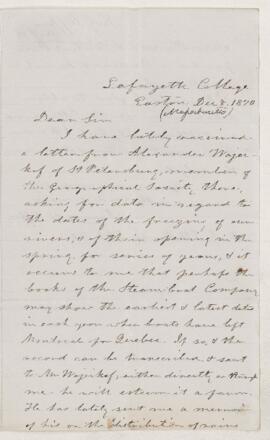 Lafayette College
Easton, Dec 8, 1870
Dear Sir
I have lately received
a letter from Alexander Wojei-
kof of St Petersburg, member of
the Geographical Society there,
asking for data in regard to
the dates of the freezing of our
rivers, & of their opening in the
spring, for series of years, & it
occurs to me that perhaps the
books of the Steamboat Company
may show the earliest & latest dates
in each year when boats have left
Montreal for Quebec. If so, & the
record can be transcribed & sent
to Mr Wojeikof, either directly or through
me, he will esteem it a favor.
He has lately sent me a memoir
of his on the distribution of rains